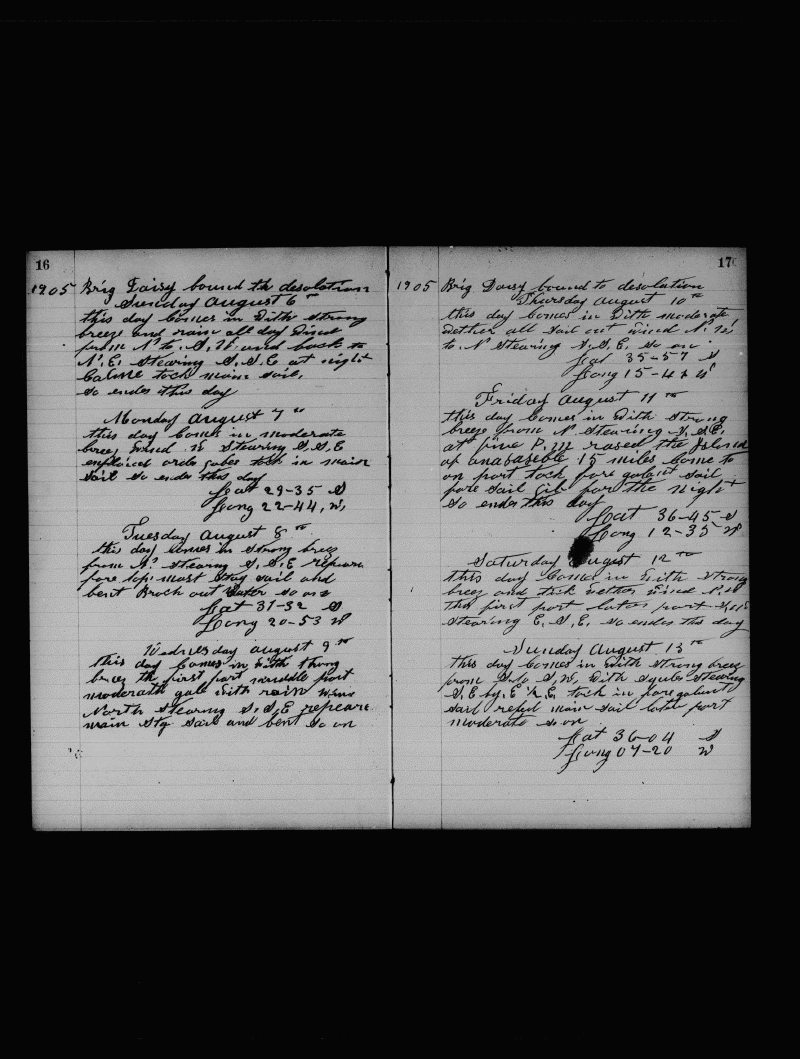 16
1905 Brig Daisy bound to desolation
Sunday August 6th
this day Comes in With strong
breeze and rain all day Wind
from N to S, W and back to
N, E, stearing S, S, E at night
Calme tock main sail,
so endes this day
Monday August 7th
this day Comes in moderate
breez Wind N Stearing S, S, E
tock in main
Sail So endes this day
Lat 29-35 S
Long 22-44, W,
Tuesday August 8th
this day Comes in Strong breez
from N, Stearing S, S, E repeare
fore top mast Stay sail and
bent out so on
Lat 31-32 S
Long 20-53 W
Wednesday august 9th
this day Comes in With strong
breez the first part middle part
moderate gale With rain Wind
North Stearing S, S, E repeare
main Stg Sail and bent So on
17
1905 Brig Daisy bound to desolation
Thursday August 10th
this day Comes in With moderate
Wether all Sail out Wind N, W
to N Stearing S, S, E, so on
Lat 35-57 S
Long 15-42 W
Friday August 11th
this day Comes in With Strong
breeze from N Stearing S, S, E,
at five P. M rased the Island
of 15 miles Come to
on port tock fore galant sail
fore Sail gib for the night
So endes this day
Lat 36-45 S
Long 12-35 W
Saturday August 12th
this day Comes in With Strong
breez and tick Wether Wind N, W
the first part later part S, W
Stearing E, S, E, so endes the day
Sunday August 13th
this day Comes in With Strong breez
from S, to S, W, With Squles Stearing
S, E by, E tock in fore galant
Sail main Sail later part
moderate so on
Lat 36-04 S
Long 07-20 W